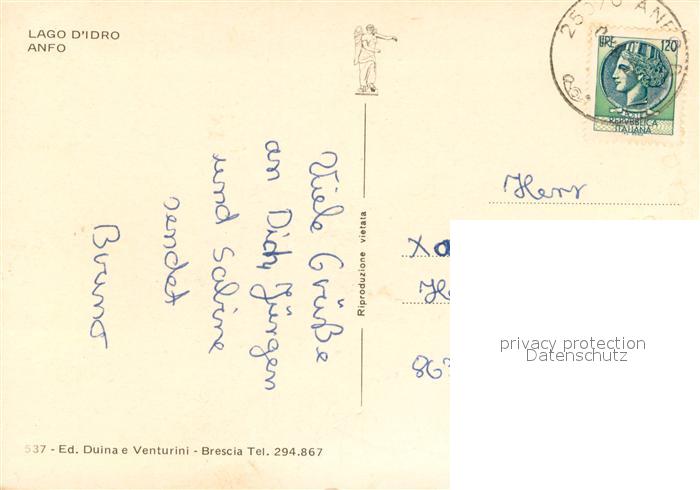 LAGO D'IDRO
ANFO
25070 ANFO
LIRE 120
POSTE
REPVBBLICA
ITALIANA
Viele Grüße
an Dich, Jürgen
und Sabine
sendet
Bruno
Riproduzione vietata
Herr
privacy protection
Datenschutz
537 - Ed. Duina e Venturini - Brescia Tel. 294.867